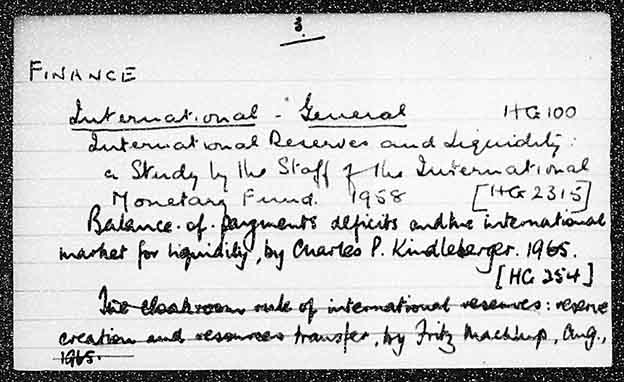 3.
FINANCE
International - General HG 100
International Reserves and Liquidity:
a Study by the Staff of the International
Monetary Fund. 1958 [HG 2315]
Balance-of-payments deficits and the international
market for liquidity, by Charles P. Kindleberger. 1965.
[HG 254]
The cloakroom rule of international reserves: reserve
creation and resources transfer, by Fritz Machlup, Aug.,
1965.